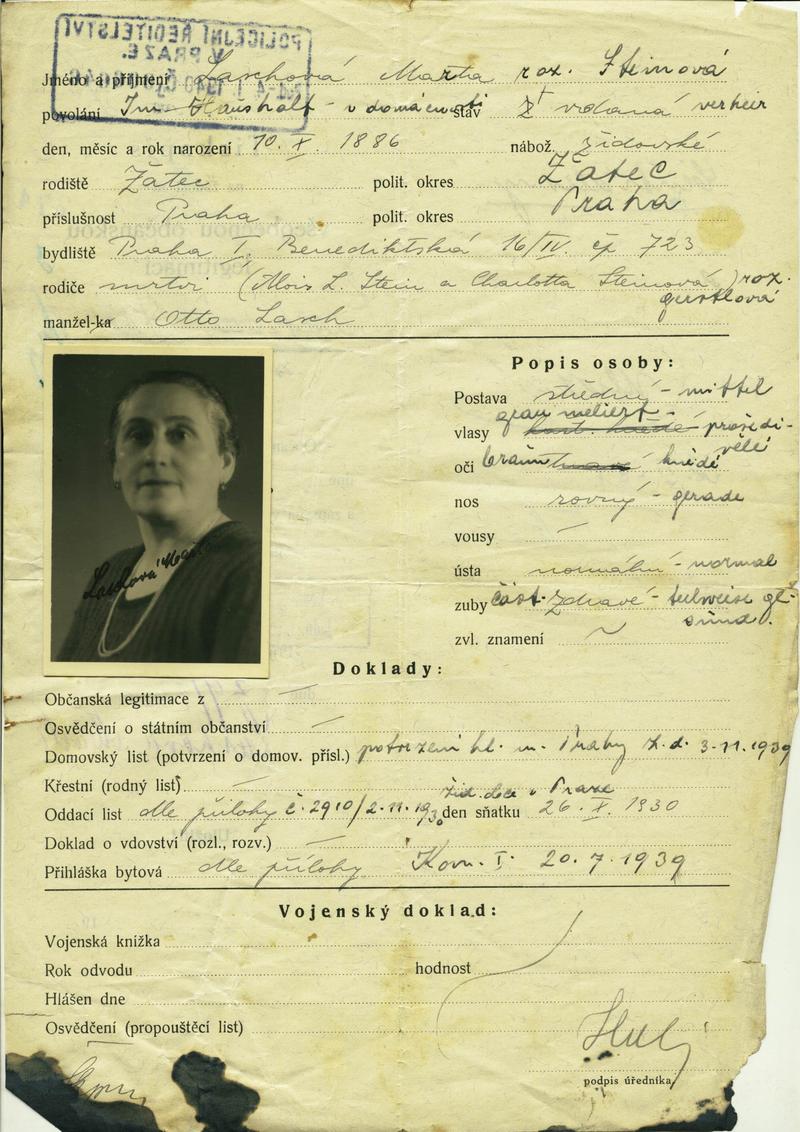 POLICEJNÍ ŘEDITELSTVÍ
V PRAZE.
Jméno a příjmení Laschová Marta roz. Steinová
povolání Im Haushalt - v domácnosti stav vdaná verheir
den, měsíc a rok narození 10. X. 1886 nábož. židovské
rodiště Žatec polit. okres Žatec
příslušnost Praha polit. okres Praha
bydliště Praha I. Benediktská 16/IV. čp 723
rodiče mrtvi (Alois L. Stein a Charlotta Steinová) roz.
gerstlová
manžel-ka Otto Lasch
Popis osoby:
Postava střední - mittel
vlasy grau meliert - prošedi-
vělé
oči braun hnědé
nos rovný - gerade
vousy —
ústa normální - normal
zuby část. zdravé - teilweise ge-
sund.
zvl. znamení ~
Laschová Marta
Doklady:
Občanská legitimace z —
Osvědčení o státním občanství —
Domovský list (potvrzení o domov. přísl.) potvrzení hl. m. Prahy z. d. 3-11.1939
Křestní (rodný list) —
žid. obce v Praze
Oddací list dle přílohy č. 2910/2.11.1930 den sňatku 26. X. 1930
Doklad o vdovství (rozl., rozv.) —
Přihláška bytová dle přílohy Kom. I. 20.7.1939
Vojenský doklad:
Vojenská knížka
Rok odvodu hodnost
Hlášen dne
Osvědčení (propouštěcí list)
podpis úředníka